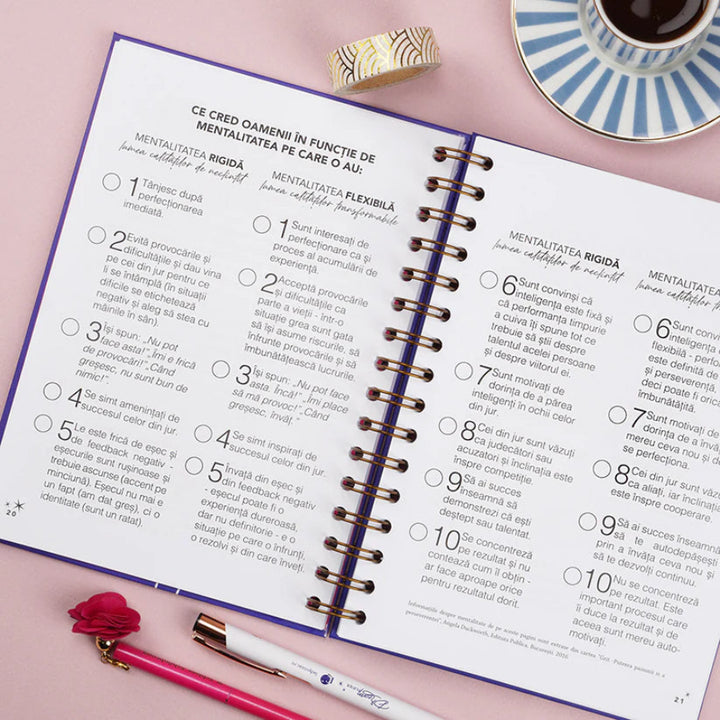 CE CRED OAMENII ÎN FUNCȚIE DE
MENTALITATEA PE CARE O AU:
MENTALITATEA RIGIDĂ
lumea calităților de neclintit
1 Tânjesc după
perfecționarea
imediată.
2 Evită provocările și
dificultățile și dau vina
pe cei din jur pentru ce
li se întâmplă (în situații
dificile se etichetează
negativ și aleg să stea cu
mâinile în sân).
3 Își spun: „Nu pot
face asta!”„Îmi e frică
de provocări!”„Când
greșesc, nu sunt bun de
nimic!”
4 Se simt amenințați de
succesul celor din jur.
5 Le este frică de eșec și
de feedback negativ -
eșecurile sunt rușinoase și
trebuie ascunse (accent pe
minciună). Eșecul nu mai e
un fapt (am dat greș), ci o
identitate (sunt un ratat).
20
MENTALITATEA FLEXIBILĂ
lumea calităților transformabile
1 Sunt interesați de
perfecționare ca și
proces al acumulării de
experiență.
2 Acceptă provocările
și dificultățile ca
parte a vieții - într-o
situație grea sunt gata
să își asume riscurile, să
înfrunte provocările și să
îmbunătățească lucrurile
3 Își spun: „Nu pot face
asta. Încă!”„Îmi place
să mă provoc!”„Când
greșesc, învăț.”
4 Se simt inspirați de
succesul celor din jur.
5 Învață din eșec și
din feedback negativ
- eșecul poate fi o
experiență dureroasă,
dar nu definitorie - e o
situație pe care o înfrunți,
o rezolvi și din care înveți.
MENTALITATEA RIGIDĂ
lumea calităților de neclintit
6 Sunt convinși că
inteligența este fixă și
că performanța timpurie
a cuiva îți spune tot ce
trebuie să știi despre
talentul acelei persoane
și despre viitorul ei.
7 Sunt motivați de
dorința de a părea
inteligenți în ochii celor
din jur.
8 Cei din jur sunt văzuți
ca judecători sau
acuzatori și înclinația este
înspre competiție.
9 Să ai succes
înseamnă să
demonstrezi că ești
deștept sau talentat.
10 Se concentrează
pe rezultat și nu
contează cum îl obțin -
ar face aproape orice
pentru rezultatul dorit.
MENTALITATEA
lumea calităților
6 Sunt convinși
inteligența
flexibilă - perf
este definită de
și perseverență
deci poate fi oric
îmbunătățită.
7 Sunt motivați de
dorința de a învă
mereu ceva nou și d
se perfecționa.
8 Cei din jur sunt văzu
ca aliați, iar înclinația
este înspre cooperare.
9 Să ai succes înseamn
să te autodepășești
prin a învăța ceva nou și
să te dezvolți continuu.
10 Nu se concentrează
pe rezultat. Este
important procesul care
îi duce la rezultat și de
aceea sunt mereu auto-
motivați.
Informațiile despre mentalitate de pe aceste pagini sunt extrase din cartea "Grit - Puterea pasiunii și a
perseverenței", Angela Duckworth, Editura Publica, București, 2016.
21